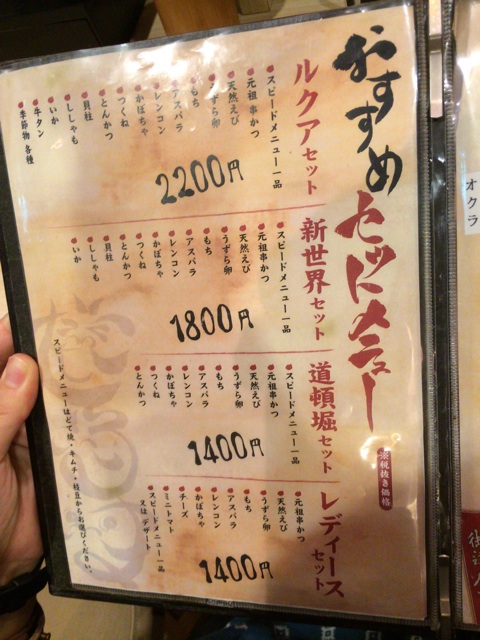 おすすめ
セットメニュー
※税抜き価格
ルクアセット
スピードメニュー一品
元祖串かつ
天然えび
うずら卵
もち
アスパラ
レンコン
かぼちゃ
つくね
とんかつ
貝柱
ししゃも
いか
牛タン
季節物 各種
2200円
新世界セット
スピードメニュー一品
元祖串かつ
天然えび
うずら卵
もち
アスパラ
レンコン
かぼちゃ
つくね
とんかつ
貝柱
ししゃも
いか
1800円
道頓堀セット
スピードメニュー一品
元祖串かつ
天然えび
うずら卵
もち
アスパラ
レンコン
かぼちゃ
つくね
とんかつ
1400円
レディースセット
元祖串かつ
天然えび
うずら卵
もち
アスパラ
レンコン
かぼちゃ
チーズ
ミニトマト
スピードメニュー一品
又は デザート
1400円
スピードメニューはどて焼・キムチ・枝豆からお選びください。
オクラ